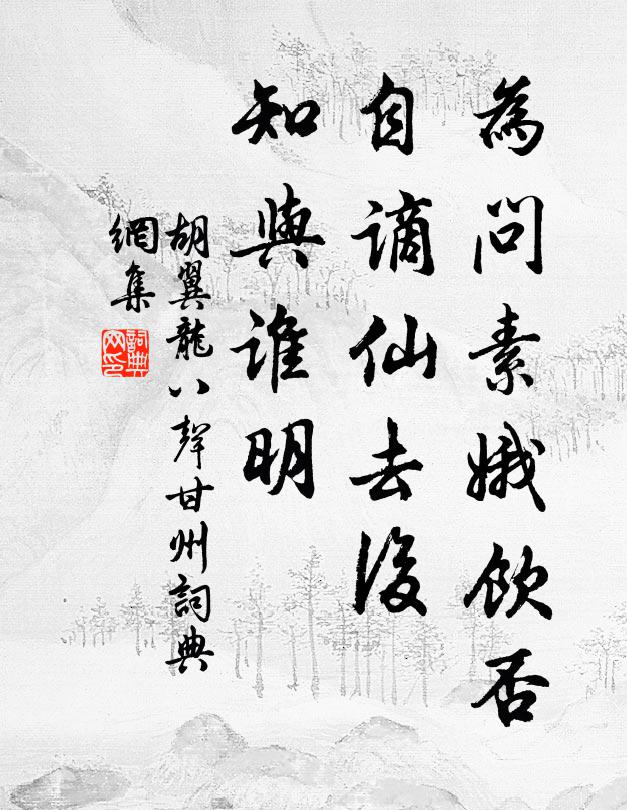 為問素娥飲否
自謫仙去後
知與誰明
胡翼龍八聲甘州詞典
網集
詞典網印